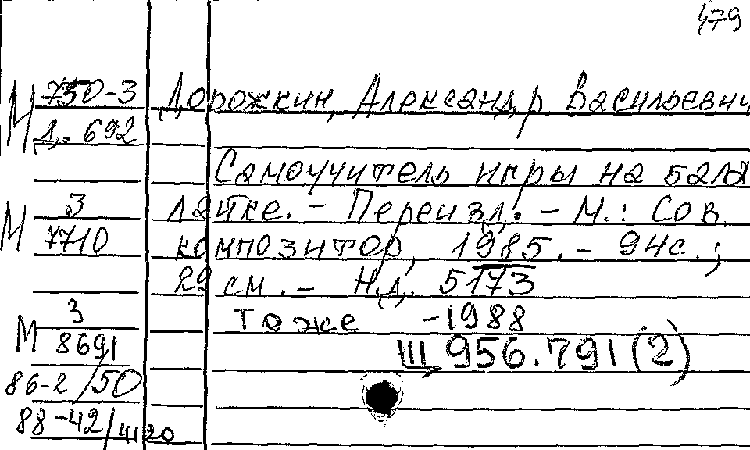 479
М 750-3 Дорожкин, Александр Васильевич
Д. 692
Самоучитель игры на бала
М 3 лайке. - Переизд. - М.: Сов.
7710 композитор, 1985. - 94с.;
29 см. - Н.д. 5173
3 Тоже -1988
М 8691 Ш 956.791 (2)
86-2/50
88-42/41120